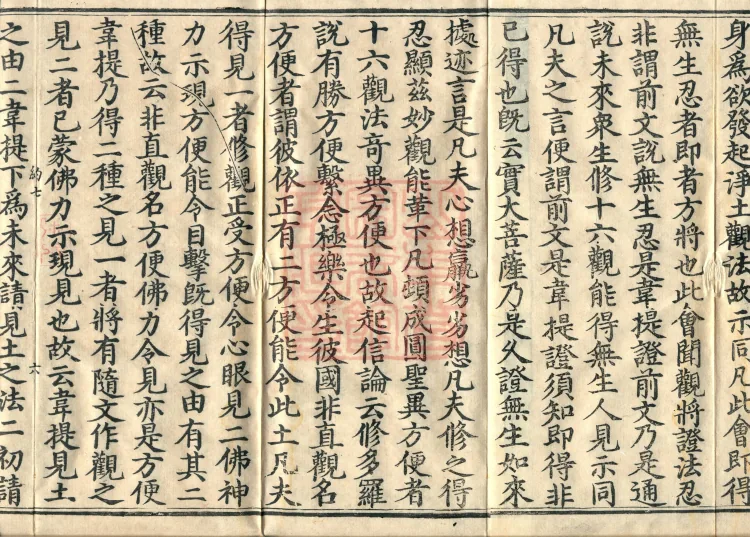 身為欲發起淨土觀法故示同凡此會即得
無生忍者即者方將也此會聞觀將證法忍
非謂前文說無生忍是韋提證前文乃是通
說未來衆生修十六觀能得無生人見示同
凡夫之言便謂前文是韋提證須知即得非
已得也旣云實大菩薩乃是久證無生如來
據迹言是凡夫心想羸劣劣想凡夫修之得
忍顯茲妙觀能革下凡頓成圓聖異方便者
十六觀法奇異方便也故起信論云修多羅
說有勝方便繫念極樂令生彼國非直觀名
方便者謂彼依正有二方便能令此土凡夫
得見一者修觀正受方便令心眼見二佛神
力示現方便能令目擊旣得見之由有其二
種故云非直觀名方便佛力令見亦是方便
韋提乃得二種之見一者將有隨文作觀之
見二者已蒙佛力示現見也故云韋提見土
之由二韋提下為未來請見土之法二初請
納七
六